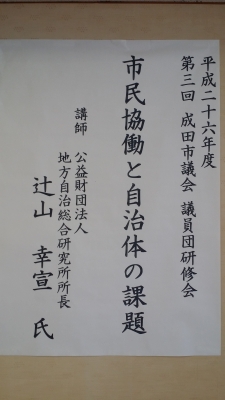 平成二十六年度
第三回 成田市議会 議員団研修会
市民協働と自治体の課題
講師 公益財団法人
地方自治総合研究所所長
辻山 幸宣 氏